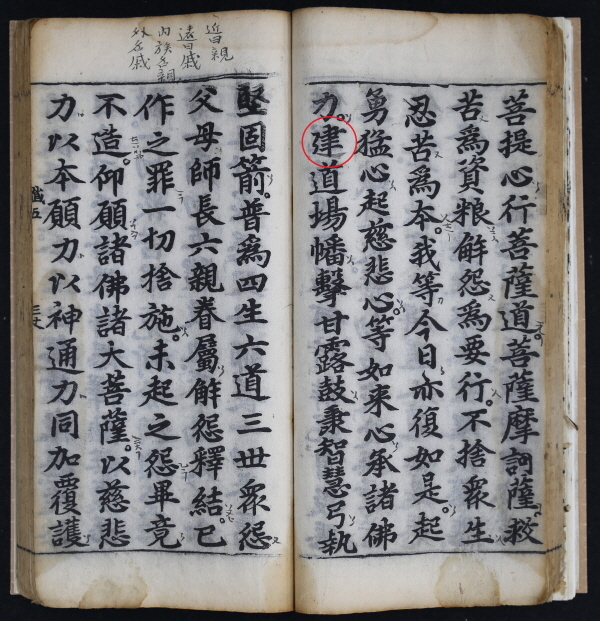 近曰親
遠曰戚
內族為親
外為戚
菩提心行菩薩道菩薩摩訶薩救
苦爲資粮解怨爲要行。不捨衆生
忍苦爲夲。我等今日亦復如是。起
勇猛心起慈悲心。等如来心承諸佛
力。建道場幡擊甘露鼓秉智慧弓執
堅固箭。普爲四生六道三世衆怨
父母師長六親眷屬解怨釋結。已
作之罪一切捨施。未起之怨畢竟
不造。仰願諸佛諸大菩薩。以慈悲
力以夲願力以神通力同加覆護
懺五